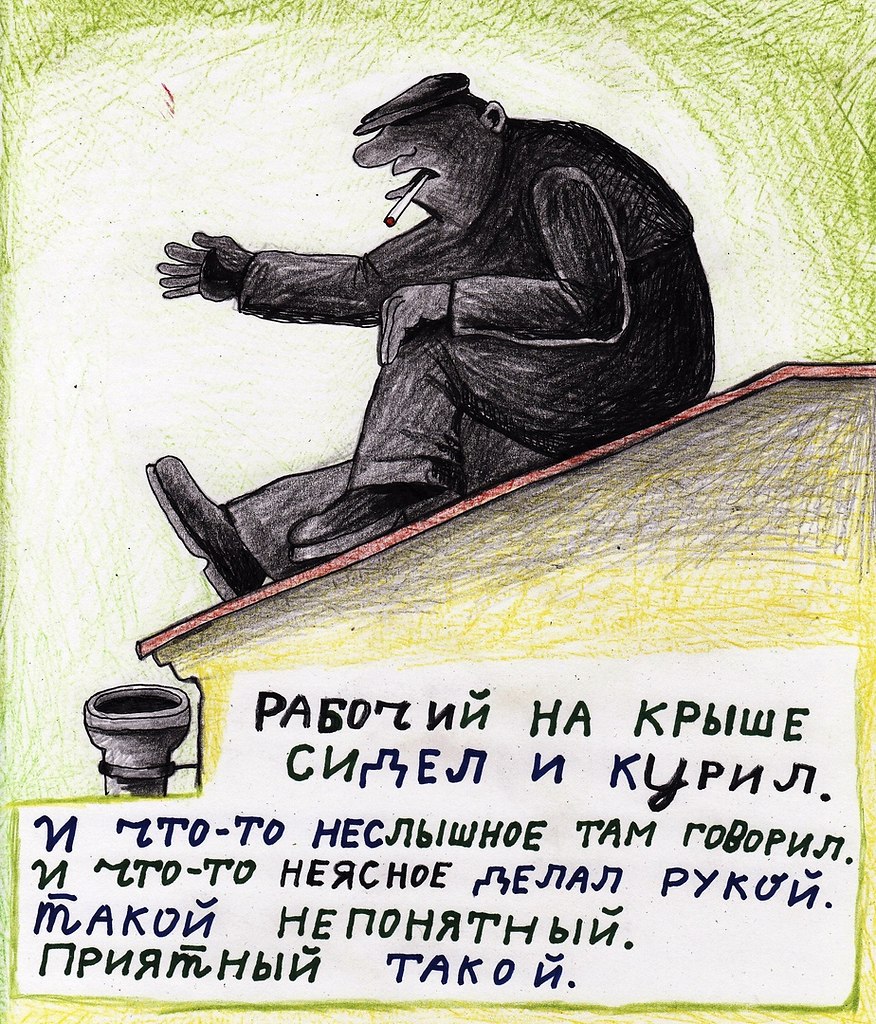 РАБОЧИЙ НА КРЫШЕ
СИДЕЛ И КУРИЛ.
И ЧТО-ТО НЕСЛЫШНОЕ ТАМ ГОВОРИЛ.
И ЧТО-ТО НЕЯСНОЕ ДЕЛАЛ РУКОЙ.
ТАКОЙ НЕПОНЯТНЫЙ.
ПРИЯТНЫЙ ТАКОЙ.